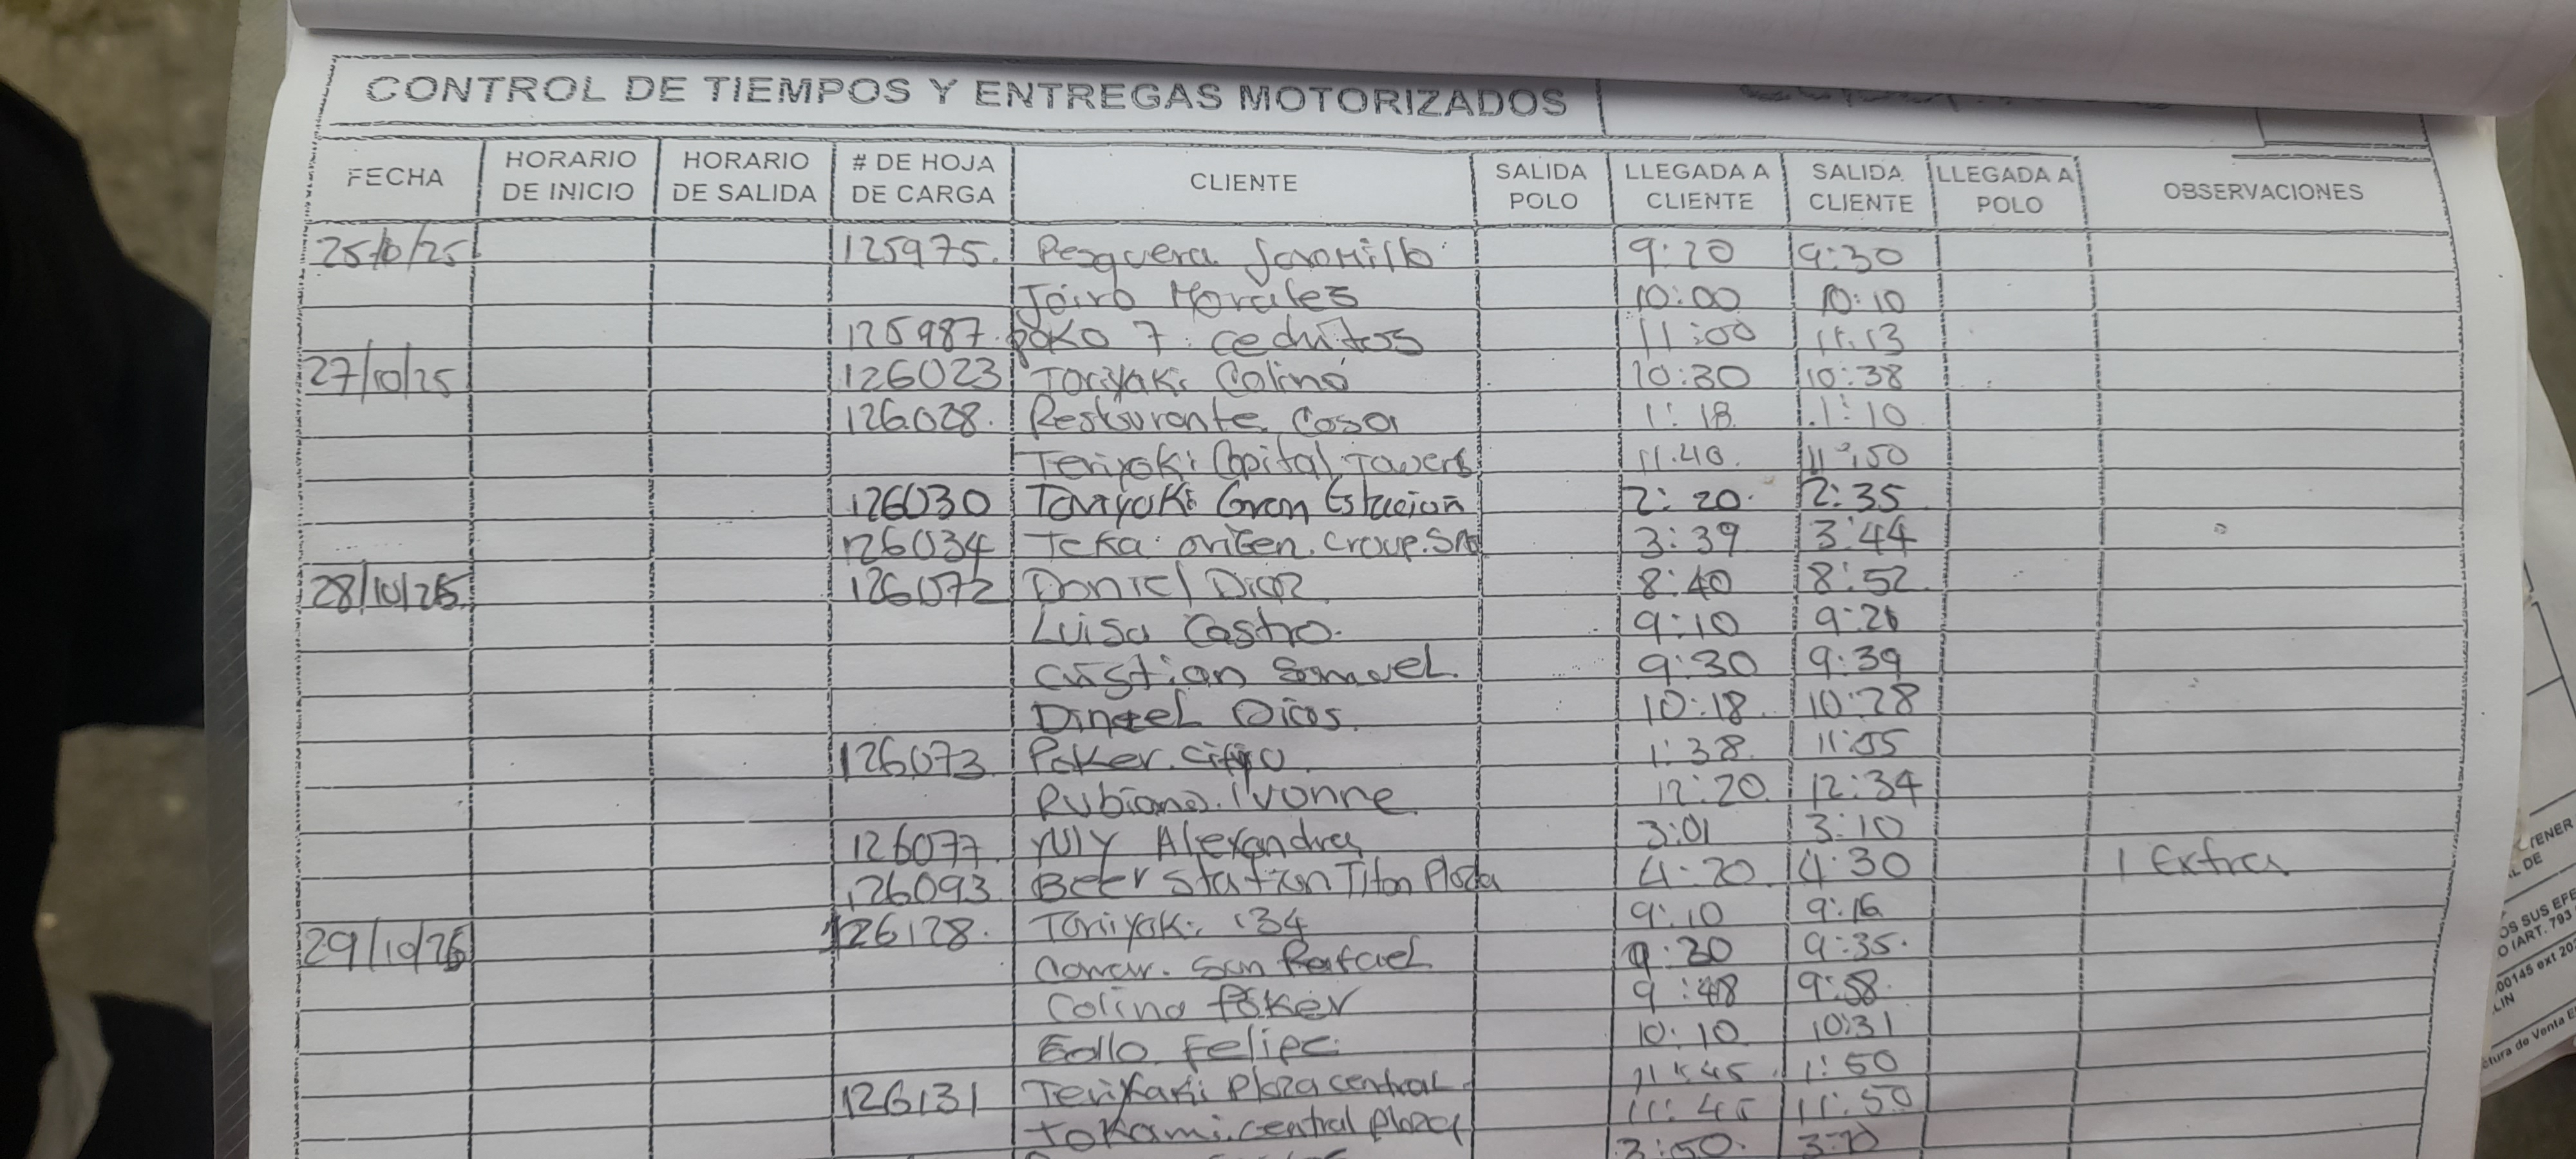 CONTROL DE TIEMPOS Y ENTREGAS MOTORIZADOS
FECHA HORARIO DE INICIO HORARIO DE SALIDA # DE HOJA DE CARGA CLIENTE SALIDA POLO LLEGADA A CLIENTE SALIDA CLIENTE LLEGADA A POLO OBSERVACIONES
25/10/25 125975. Pesquera Jaramillo 9:20 9:30
Jairo Morales 10:00 10:10
125987. poko 7. cedritos 11:00 11:13
27/10/25 126023 Toriyaki Colina 10:30 10:38
126028. Restaurante Casa 1:18 1:10
Teriyaki Capital Towers 11.40. 11:50
126030 Toriyaki Gran Estacion 2:20. 2:35
126034 Teka origen. Croup. SAS 3:39 3:44
28/10/25 126072 Daniel Diaz 8:40 8:52
Luisa Castro. 9:10 9:21
Cristian Samuel. 9:30 9:39
Dias. 10:18 10:28
126073 Poker. 1:38. 11:55
Rubiano. Ivonne 12:20 12:34
126077 Yuly Alexandra 3:01 3:10
126093 Beer Station Titan Plaza 4:20 4:30 1 Extra
29/10/25 126128. Toriyaki 134 9:10 9:16
San Rafael 9:30 9:35.
Colina Poker 9:48 9:58.
Felipe 10:10 10:31
126131 Teriyaki Plaza central 11:45 1:50
Tokami. central Plaza 11:45 11:50
3:50. 3:
TENER
DE
OS SUS EFE
O (ART. 793
00145 ext 20
LIN
ctura de Venta E